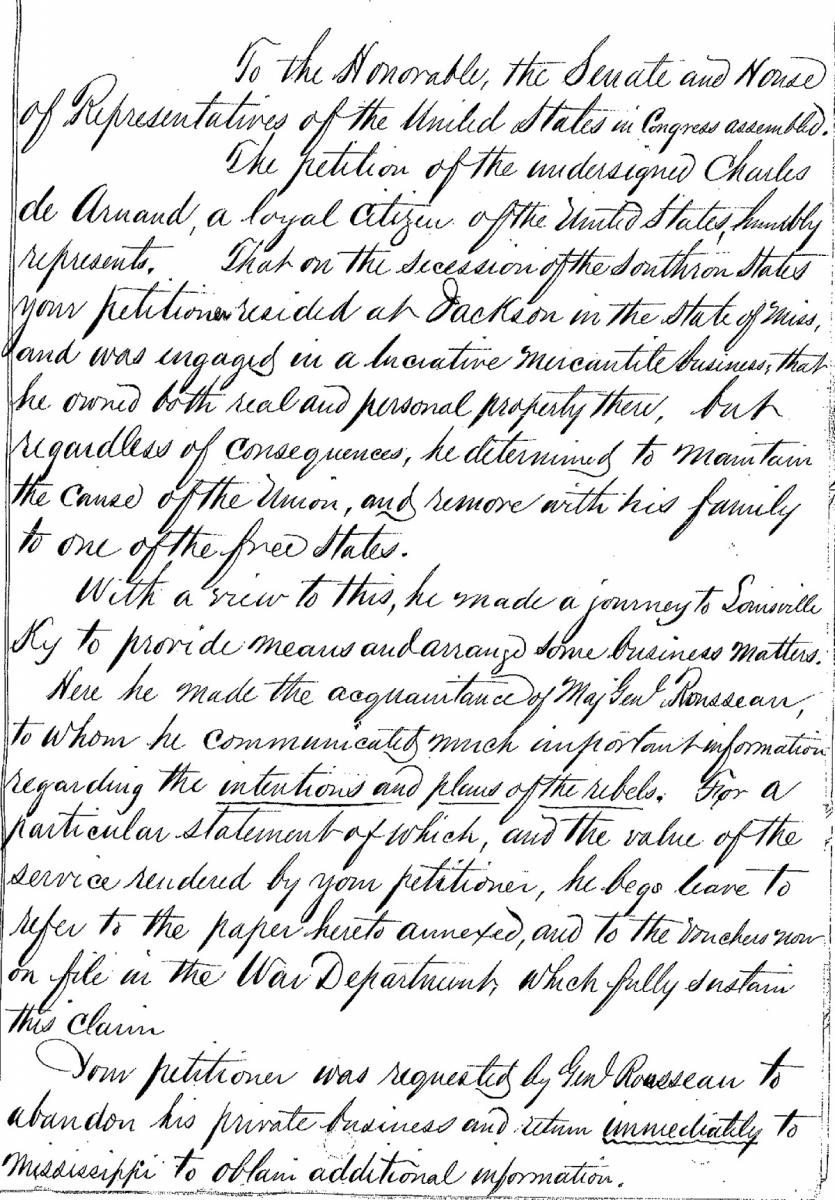 To the Honorable, the Senate and House
of Representatives of the United States in Congress assembled.
The petition of the undersigned Charles
de Arnaud, a loyal citizen of the United States, humbly
represents. That on the secession of the Southron States
your petitioner resided at Jackson in the State of Miss,
and was engaged in a lucrative mercantile business; that
he owned both real and personal property there, but
regardless of consequences, he determined to maintain
the cause of the Union, and remove with his family
to one of the free States.
With a view to this, he made a journey to Louisville
Ky to provide means and arrange some business matters.
Here he made the acquaintance of Maj Genl. Rousseau,
to whom he communicated much important information
regarding the intentions and plans of the rebels. For a
particular statement of which, and the value of the
service rendered by your petitioner, he begs leave to
refer to the paper hereto annexed, and to the vouchers now
on file in the War Department, which fully sustain
this claim
Your petitioner was requested by Genl Rousseau to
abandon his private business and return immediately to
Mississippi to obtain additional information.